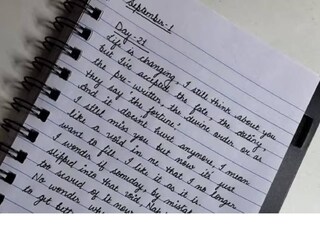 September-1
Day-21
Life is changing, I still think about you
but I've accepted the fate, the destiny,
the pre-written, the divine order or as
they say the fortune.
And it doesn't hurt anymore, I mean
I still miss you but now it's just
like a void in me that I no longer
want to fill, I like it as it is.
I wonder if someday, by mistake
slipped into that void, Nah
too scared of it now
No wonder why
to get